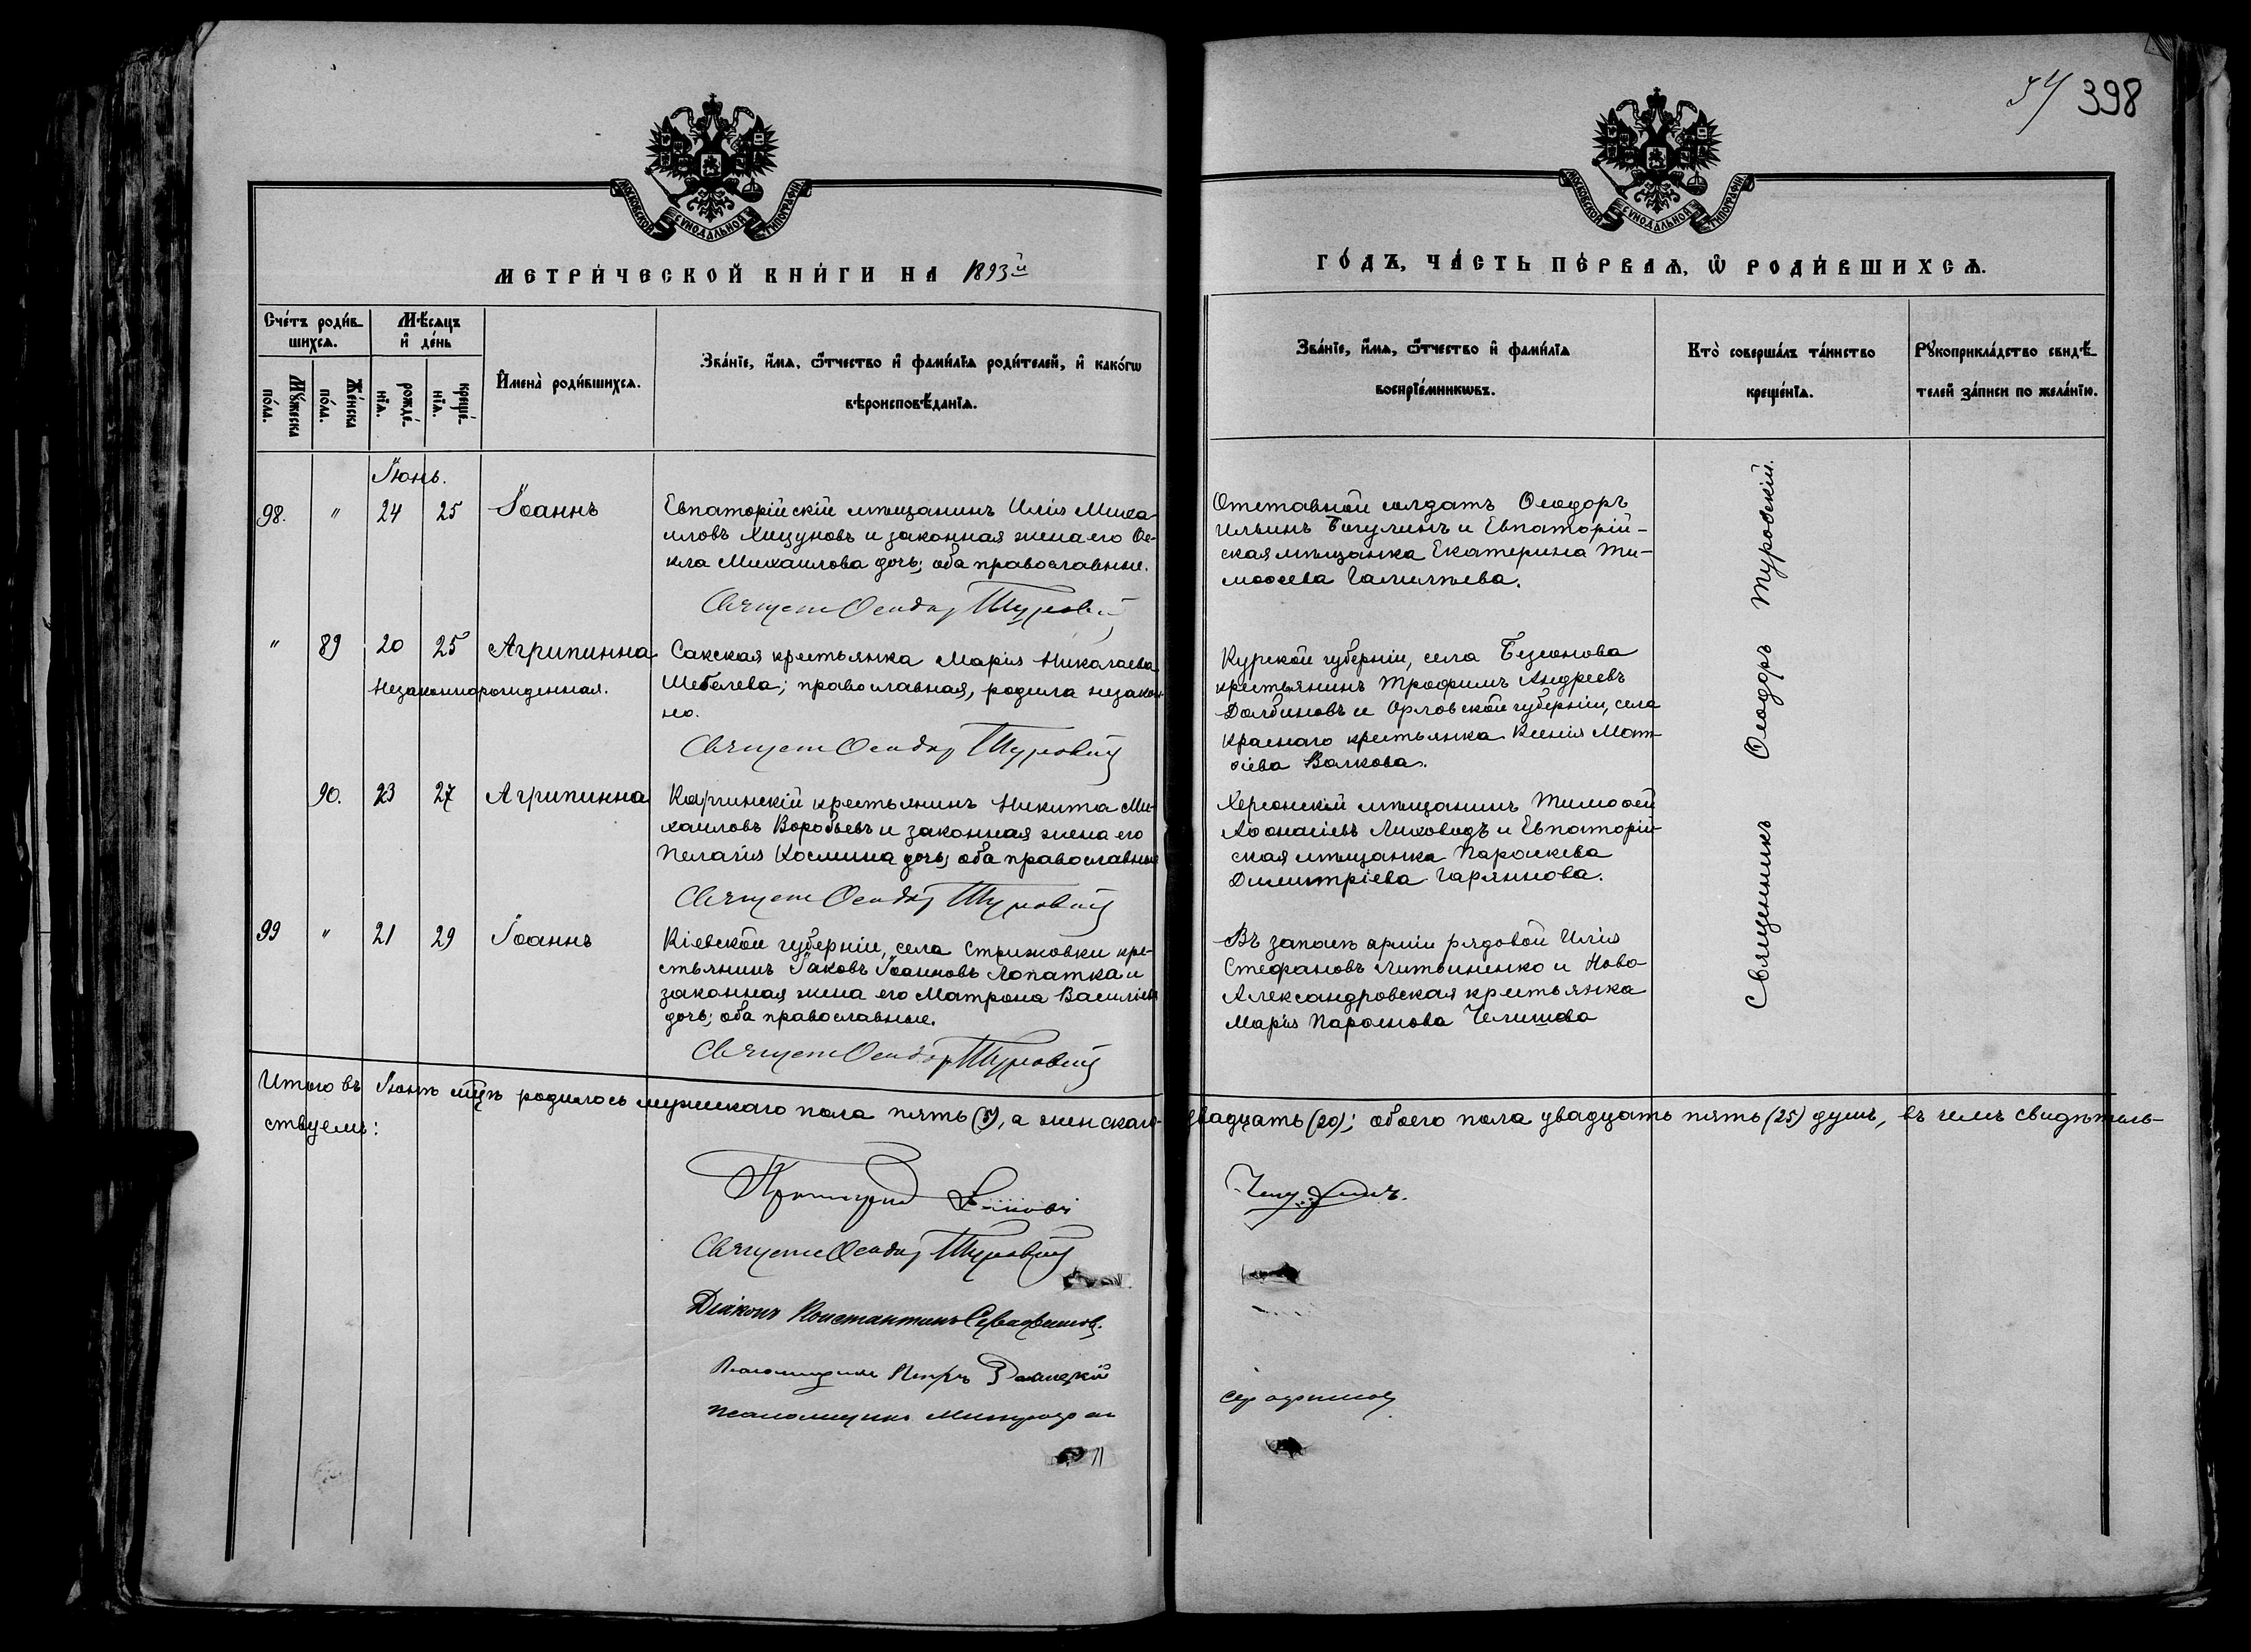 54 398
МОСКОВСКОЙ СѴНОДАЛЬНОЙ ТИПОГРАФІИ
МОСКОВСКОЙ СѴНОДАЛЬНОЙ ТИПОГРАФІИ
МЕТРИ́ЧЕСКОЙ КНИ́ГИ НА 1893й
ГО́ДЪ, ЧА́СТЬ ПЕ́РВАЯ, Ѡ҆ РОДИ́ВШИХСЯ.
Сче́тъ роди́в-
шихся.
Мѣ́сяцъ
и҆ де́нь
Мꙋ́жеска
по́ла.
Же́нска
по́ла.
рожде́-
нїя.
креще́-
нїя.
И҆мена̀ роди́вшихся.
Зва́нїе, и҆́мя, ѻ҆́тчество и҆ фами́лїя роди́телей, и҆ како́гѡ
вѣроисповѣ́данїя.
Зва́нїе, и҆́мя, ѻ҆́тчество и҆ фами́лїя
воспрїе́мникѡвъ.
Кто̀ соверша́лъ та́инство
креще́нїя.
Рꙋкоприкла́дство свидѣ́-
телей за́писи по жела́нїю.
Іюнь.
98. " 24 25 Іоаннъ
Евпаторійскій мѣщанинъ Илія Миха-
иловъ Хицуновъ и законная жена его Ѳе-
кла Михаилова дочь; оба православные.
Священ Ѳеодор Туровскій
Отставной солдатъ Ѳеодоръ
Ильинъ Бигулинъ и Евпаторій-
ская мѣщанка Екатерина Ти-
моѳеева
" 89 20 25 Агрипинна
Незаконнорожденная.
Сакская крестьянка Марія Николаева
Шебелева; православная, родила незакон-
но.
Священ Ѳеодор Туровскій
Курской губерніи, села Безсонова
крестьянинъ Трофимъ Андреевъ
Долбиновъ и Орловской губерніи, села
Краснаго крестьянка Ксенія Мат-
ѳіева Волкова.
90. 23 27 Агрипинна
Каргинскій крестьянинъ Никита Ми-
хаиловъ Воробьевъ и законная жена его
Пелагія Космина дочь; оба православные
Священ Ѳеодор Туровскій
Херсонскій мѣщанинъ Тимоѳей
Аѳонасіевъ Лиховидъ и Евпаторій-
ская мѣщанка Параскева
Димитріева Гаряннова.
99 " 21 29 Іоаннъ
Кіевской губерніи, села Стрижовки кре-
стьянинъ Іаковъ Іоанновъ Лопатка и
законная жена его Матрона Василіева
дочь; оба православные.
Священ Ѳеодор Туровскій
Въ запасѣ арміи рядовой Илія
Стефановъ Литвиненко и Ново-
Александровская крестьянка
Марія
Священникъ Ѳеодоръ Туровскій.
Итого въ Іюнѣ мцѣ родилось мужескаго пола пять (5), а женскаго двадцать (20); обоего пола двадцать пять (25) душъ, въ чемъ свидѣтель-
ствуемъ:
Протоіерей
Священ Ѳеодор Туровскій
Діаконъ Константинъ Серафимов.
Псаломщикъ Петръ
Псаломщикъ Митрофан Серафимов